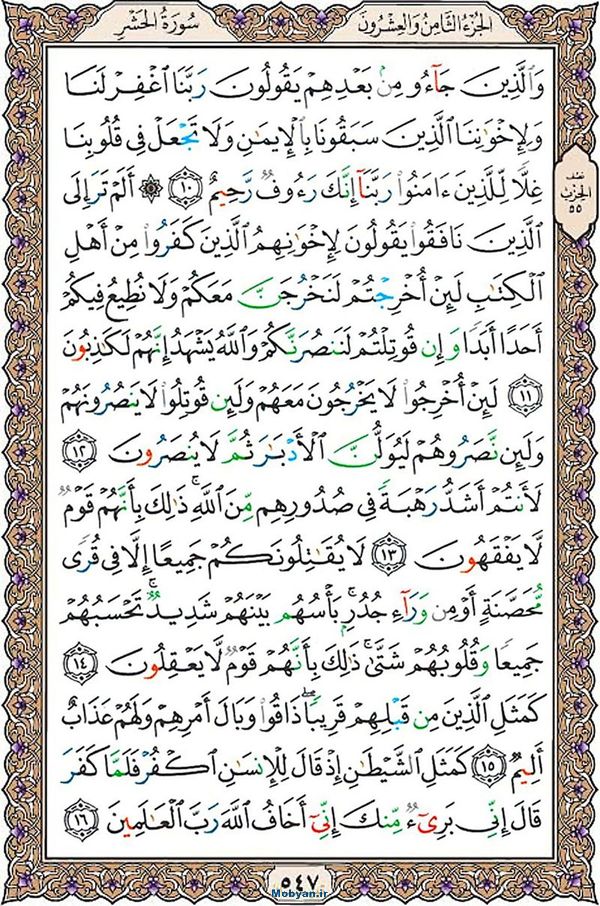 الجزء الثامن والعشرون
سورة الحشر
وَٱلَّذِينَ جَآءُو مِنۢ بَعْدِهِمْ يَقُولُونَ رَبَّنَا ٱغْفِرْ لَنَا
وَلِإِخْوَٰنِنَا ٱلَّذِينَ سَبَقُونَا بِٱلْإِيمَٰنِ وَلَا تَجْعَلْ فِى قُلُوبِنَا
غِلًّا لِّلَّذِينَ ءَامَنُوا۟ رَبَّنَآ إِنَّكَ رَءُوفٌ رَّحِيمٌ ١٠ ۞ أَلَمْ تَرَ إِلَى
ٱلَّذِينَ نَافَقُوا۟ يَقُولُونَ لِإِخْوَٰنِهِمُ ٱلَّذِينَ كَفَرُوا۟ مِنْ أَهْلِ
ٱلْكِتَٰبِ لَئِنْ أُخْرِجْتُمْ لَنَخْرُجَنَّ مَعَكُمْ وَلَا نُطِيعُ فِيكُمْ
أَحَدًا أَبَدًا وَإِن قُوتِلْتُمْ لَنَنصُرَنَّكُمْ وَٱللَّهُ يَشْهَدُ إِنَّهُمْ لَكَٰذِبُونَ
١١ لَئِنْ أُخْرِجُوا۟ لَا يَخْرُجُونَ مَعَهُمْ وَلَئِن قُوتِلُوا۟ لَا يَنصُرُونَهُمْ
وَلَئِن نَّصَرُوهُمْ لَيُوَلُّنَّ ٱلْأَدْبَٰرَ ثُمَّ لَا يُنصَرُونَ ١٢
لَأَنتُمْ أَشَدُّ رَهْبَةً فِى صُدُورِهِم مِّنَ ٱللَّهِ ۚ ذَٰلِكَ بِأَنَّهُمْ قَوْمٌ
لَّا يَفْقَهُونَ ١٣ لَا يُقَٰتِلُونَكُمْ جَمِيعًا إِلَّا فِى قُرًى
مُّحَصَّنَةٍ أَوْ مِن وَرَآءِ جُدُرٍۭ ۚ بَأْسُهُم بَيْنَهُمْ شَدِيدٌ ۚ تَحْسَبُهُمْ
جَمِيعًا وَقُلُوبُهُمْ شَتَّىٰ ۚ ذَٰلِكَ بِأَنَّهُمْ قَوْمٌ لَّا يَعْقِلُونَ ١٤
كَمَثَلِ ٱلَّذِينَ مِن قَبْلِهِمْ قَرِيبًا ۖ ذَاقُوا۟ وَبَالَ أَمْرِهِمْ وَلَهُمْ عَذَابٌ
أَلِيمٌ ١٥ كَمَثَلِ ٱلشَّيْطَٰنِ إِذْ قَالَ لِلْإِنسَٰنِ ٱكْفُرْ فَلَمَّا كَفَرَ
قَالَ إِنِّى بَرِىٓءٌ مِّنكَ إِنِّىٓ أَخَافُ ٱللَّهَ رَبَّ ٱلْعَٰلَمِينَ ١٦
نصف
الحزب
٥٥
٥٤٧
Mobyan.ir